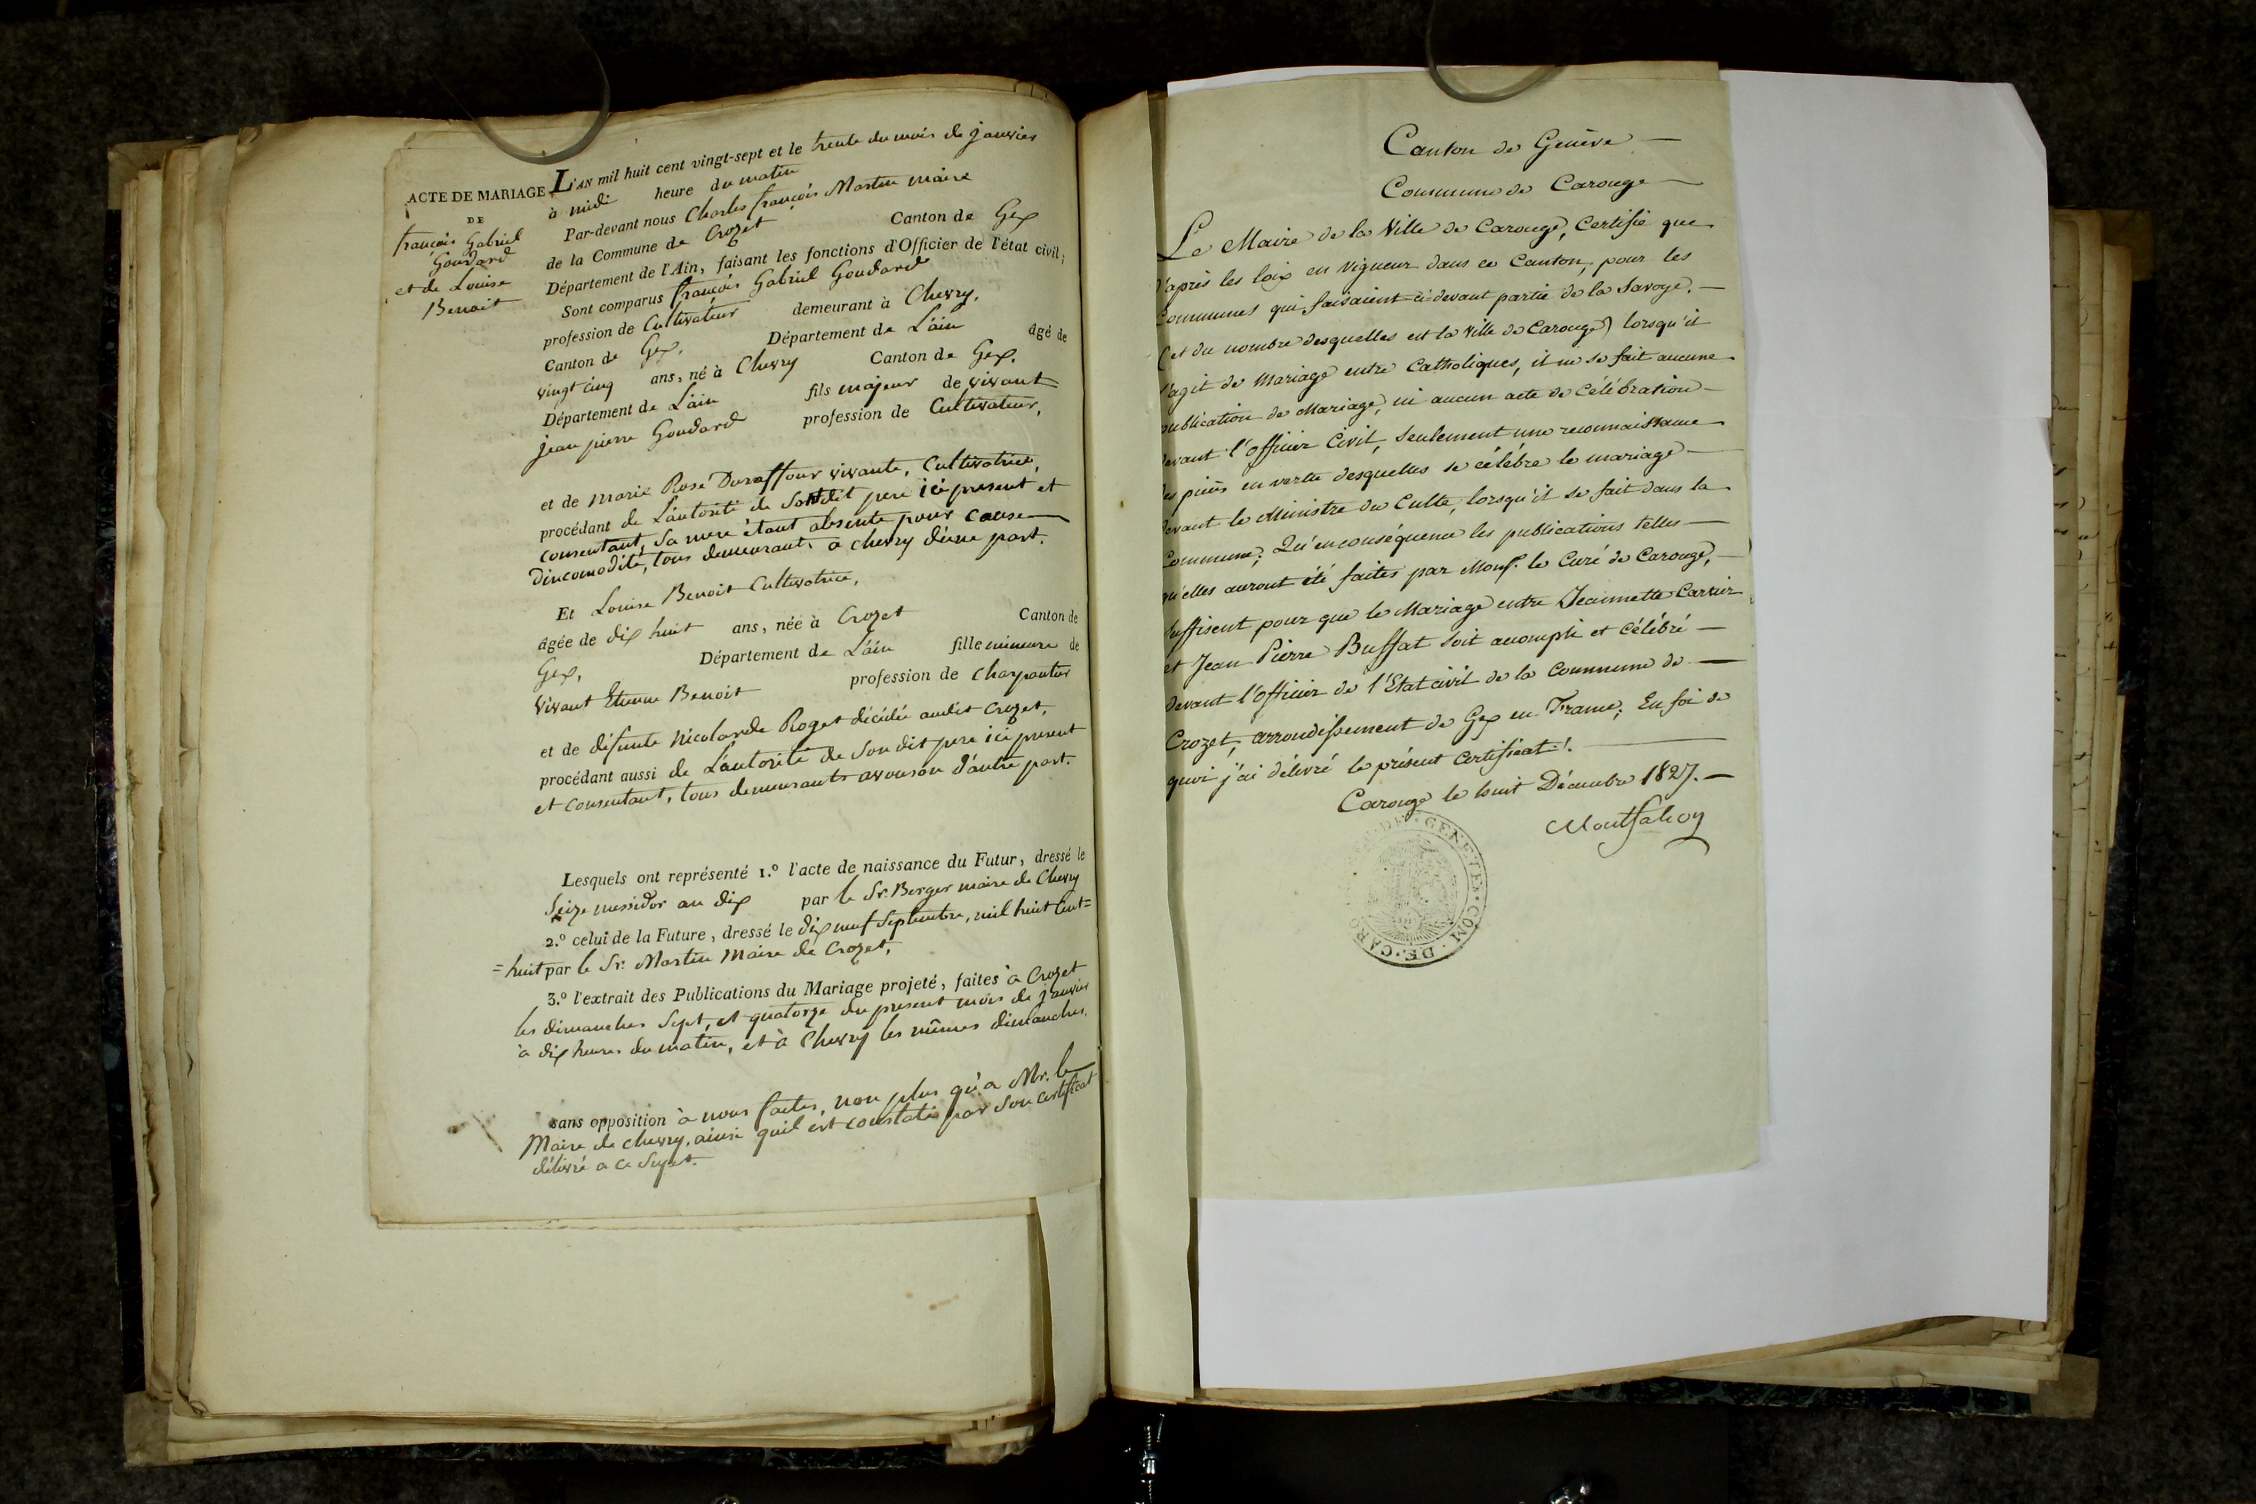 ACTE DE MARIAGE
DE
françois Gabriel
Goudard
et de Louise
Benoit
L'AN mil huit cent vingt-sept et le trente du mois de janvier
à midi heure du matin
Par-devant nous Charles françois Martin maire
de la Commune de Crozet Canton de Gex
Département de l'Ain, faisant les fonctions d'Officier de l'état civil;
Sont comparus françois Gabriel Goudard
profession de Cultivateur demeurant à Chevry,
Canton de Gex, Département de L'ain âgé de
vingt cinq ans, né à Chevry Canton de Gex,
Département de L'ain fils majeur de vivant
jean pierre Goudard profession de Cultivateur,
et de marie Rose Duraffour vivante, Cultivatrice,
procédant de L'autorité de Sondit pere ici present et
consentant, Sa mere étant absente pour cause
d'incomodité, tous demeurants a chevry d'une part.
Et Louise Benoit Cultivatrice,
âgée de dix huit ans, née à Crozet Canton de
Gex, Département de L'ain fille mineure de
vivant Etienne Benoit profession de charpentier
et de défunte Nicolarde Roget décédée audit Crozet,
procédant aussi de L'autorité de Son dit pere ici present
et consentant, tous demeurants avouson d'autre part.
Lesquels ont représenté 1.º l'acte de naissance du Futur, dressé le
Seize messidor an dix par le Sr. Berger maire de Chevry
2.º celui de la Future, dressé le dix neuf Septembre, mil huit Cent=
=huit par le Sr. Martin Maire de Crozet,
3.º l'extrait des Publications du Mariage projeté, faites à Crozet
les dimanches Sept, et quatorze du present mois de janvier
à dix heures du matin, et à Chevry les mêmes dimanches.
sans opposition à nous faites, non plus qu'a Mr. le
Maire de chevry, ainsi quil est constaté par Son certificat
délivré a ce Sujet.
Canton de Genève
Commune de Carouge
Le Maire de la Ville de Carouge, Certifie que
d'après les loix en vigueur dans ce Canton, pour les
Communes qui faisaient ci-devant partie de la Savoye.
(et du nombre desquelles est la ville de Carouge) lorsqu'il
s'agit de Mariage entre Catholiques, il ne se fait aucune
publication de Mariage, ni aucun acte de Célébration
devant l'officier Civil, seulement une reconnaissance
des pièces en vertu desquelles se célébre le mariage
devant le Ministre du Culte, lorsqu'il se fait dans la
Commune; Qu'en conséquence les publications telles
qu'elles auront été faites par Monsr. le Curé de Carouge,
suffisent pour que le Mariage entre Jeannette Carrier
et Jean Pierre Buffat soit accompli et célébré
devant l'officier de l'Etat civil de la Commune de
Crozet, arrondissement de Gex en France; En foi de
quoi j'ai délivré le présent Certificat.
Carouge le huit Décembre 1827.
Montfalcon
DE·GENEVE·COM·DE·CARO